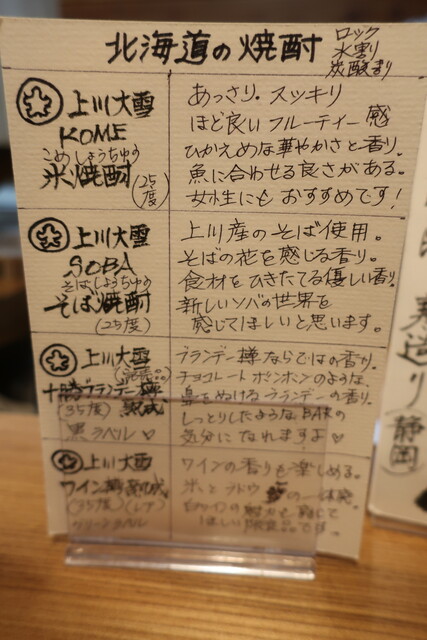 北海道の焼酎
ロック
水割り
炭酸割り
上川大雪
KOME
こめしょうちゅう
米焼酎
(25度)
あっさり。スッキリ
ほど良いフルーティー感
ひかえめな華やかさと香り。
魚に合わせる良さがある。
女性にもおすすめです!
上川大雪
SOBA
そばしょうちゅう
そば焼酎
(25度)
上川産のそば使用。
そばの花を感じる香り。
食材をひきたてる優しい香り。
新しいソバの世界を
感じてほしいと思います。
上川大雪
十勝ブランデー樽
熟成
(35度)
黒ラベル♡
ブランデー樽ならではの香り。
チョコレートボンボンのような、
鼻をぬけるブランデーの香り。
しっとりしたようなBARの
気分になれますよ♡
上川大雪
ワイン樽熟成
(35度)(レア)
グリーンラベル
ワインの香りも楽しめる。
米とブドウの一体感。
の魅力を感じて
ほしい限定品です。
寿造り
(静岡)